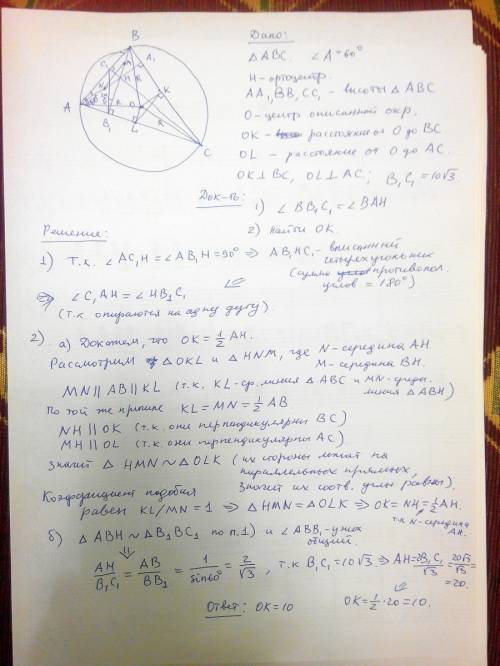 Дано:
△ABC. ∠A=60°
H - ортоцентр.
AA₁, BB₁, CC₁ - высоты △ABC
O - центр описанной окр.
OK - расстояние от O до BC
OL - расстояние от O до AC.
OK⊥BC, OL⊥AC; B₁C₁=10√3.
Док-ть: 1) ∠BB₁C₁=∠BAH
2) Найти OK.
Решение:
1) Т.к. ∠AC₁H=∠AB₁H=90° ⇒ AB₁HC₁ - вписанный
четырехугольник
(сумма противопол.
углов = 180°)
⇒ ∠C₁AH=∠HB₁C₁
(т.к. опираются на одну дугу).
2) а) Докажем, что OK=½AH.
Рассмотрим △OKL и △HNM, где N - середина AH
M - середина BH.
MN∥AB∥KL (т.к. KL - ср. линия △ABC и MN - средн.
линия △ABH)
По той же причине KL=MN=½AB
NH∥OK (т.к. они перпендикулярны BC)
MH∥OL (т.к. они перпендикулярны AC)
Значит △HMN∼△OLK (их стороны лежат на
параллельных прямых,
значит их соотв. углы равны).
Коэффициент подобия
равен KL/MN=1 ⇒ △HMN=△OLK ⇒ OK=NH=½AH.
т.к. N - середина
AH.
б) △ABH∼△B₁BC₁ по п.1) и ∠ABB₁ - у них
общий.
⇓
AH/B₁C₁=AB/BB₁=1/sin60°=2/√3, т.к. B₁C₁=10√3 ⇒ AH=2B₁C₁/√3=20√3/√3=
=20.
OK=½·20=10.
Ответ: OK=10
B
C₁
A₁
H
K
A
B₁
O
L
R
C